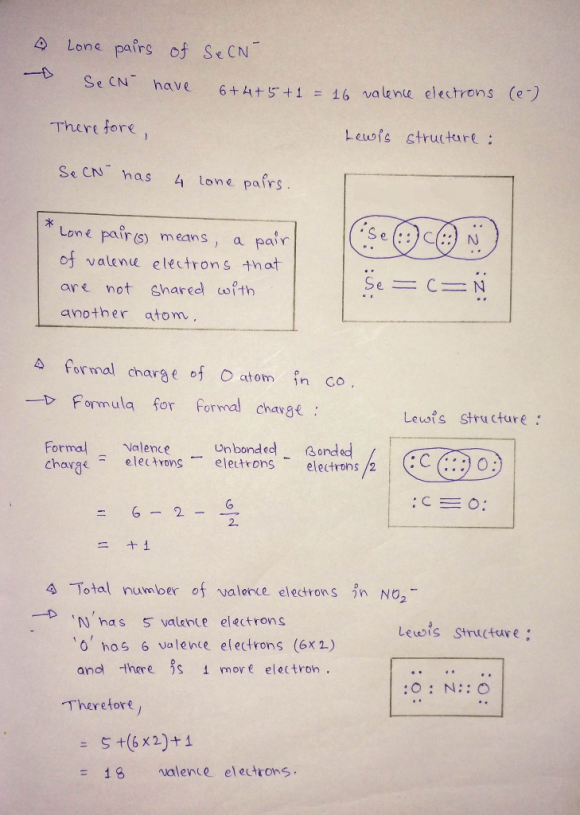 Lone pairs of SeCN⁻
→ SeCN⁻ have 6+4+5+1 = 16 valence electrons (e-)
Therefore,
SeCN⁻ has 4 lone pairs.
* Lone pair(s) means, a pair
of valence electrons that
are not shared with
another atom.
Lewis structure :
:Se :: C :: N
Se = C = N
Formal charge of O atom in CO.
→ Formula for formal charge :
Formal charge = Valence electrons - Unbonded electrons - Bonded electrons/2
= 6 - 2 - 6/2
= +1
Lewis structure :
:C ::: O:
:C ≡ O:
Total number of valence electrons in NO₂⁻
→ 'N' has 5 valence electrons
'O' has 6 valence electrons (6×2)
and there is 1 more electron.
Therefore,
= 5+(6×2)+1
= 18 valence electrons.
Lewis structure :
:O : N :: O